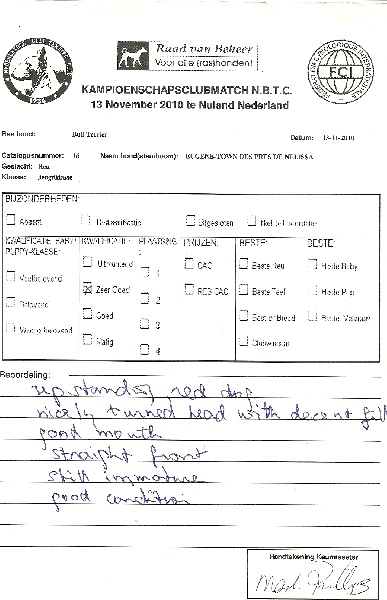 Raad van Beheer
Voor alle (ras)honden!
FCI
KAMPIOENSCHAPSCLUBMATCH N.B.T.C.
13 November 2010 te Nuland Nederland
Ras hond: Bull Terrier
Datum: 13-11-2010
Catalogusnummer: 16 Naam hond(stamboom): EUGENE-TOWN DES PRES DE NELISSA
Geslacht: Reu
Klasse: Jeugdklasse
BIJZONDERHEDEN:
Absent Diskwalificatie Uitgesloten
KWALIFICATIE BABY/ PUPPY-KLASSE: KWALIFICATIE: PLAATSING: PRIJZEN: BESTE: BESTE:
Veelbelovend
Belovend
Weinig belovend
Uitmuntend
Zeer Goed
Goed
Matig
1
2
3
4
CAC
RES CAC
Beste Reu
Beste Teef
Best of Breed
Clubwinner
Beste Baby
Beste Pup
Beste Veteraan
Beoordeling:
upstanding red dog
nicely turned head with decent fill
good mouth
straight front
still immature
good condition
Handtekening Keurmeester